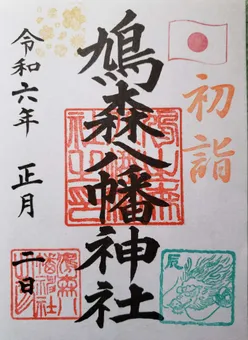 初詣
鳩森八幡神社
令和六年 正月 二日
辰